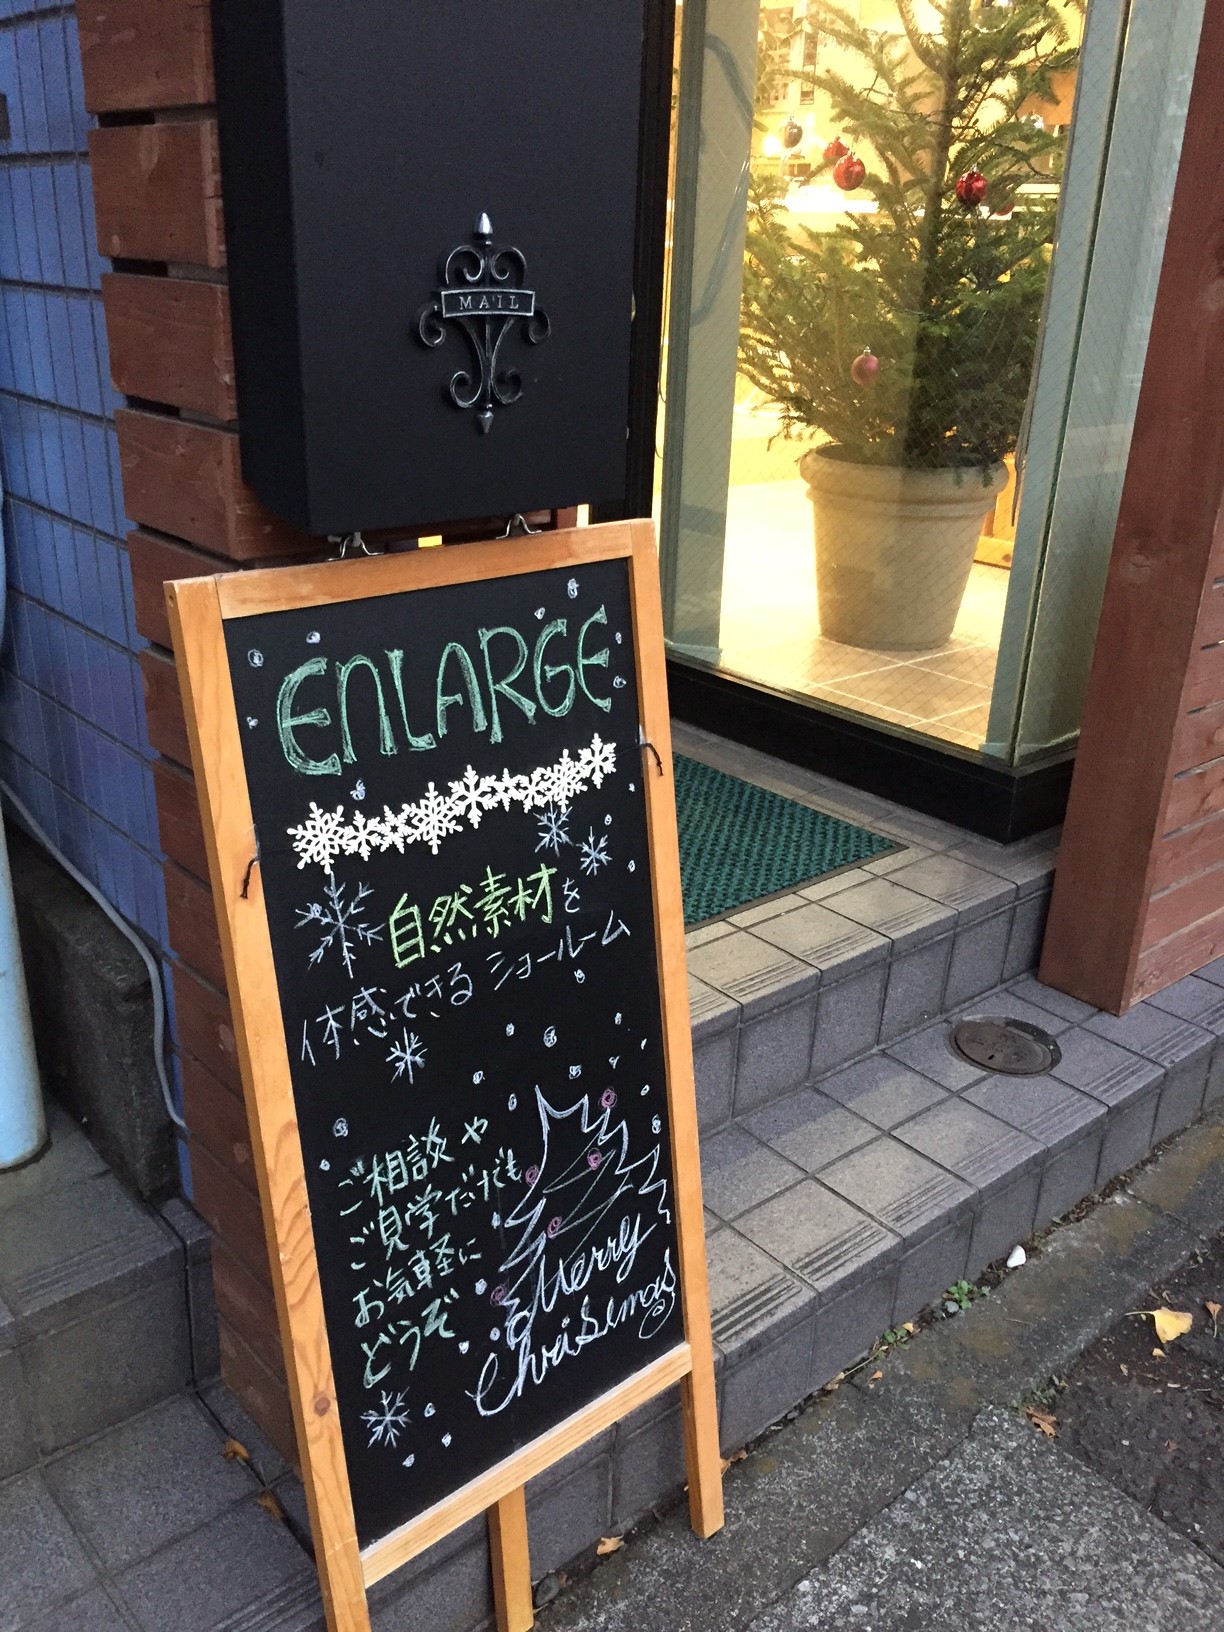 MAIL
ENLARGE
自然素材を
体感できる ショールーム
ご相談や
ご見学だけでも
お気軽に
どうぞ
Merry
Christmas